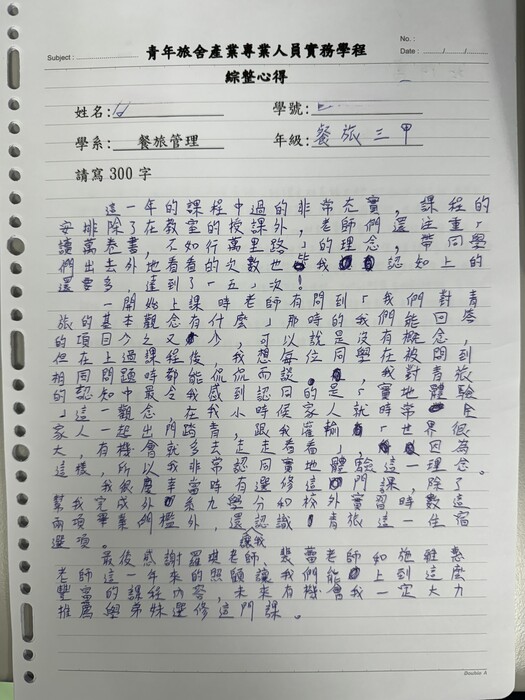 No. :
Subject :
Date : / /
青年旅舍產業專業人員實務學程
綜整心得
姓名:
學號:
學系: 餐旅管理
年級: 餐旅三甲
請寫 300 字
這一年的課程中過的非常充實，課程的
安排除了在教室的授課外，老師們還注重「
讀萬卷書，不如行萬里路」的理念，帶同學
們出去外地看看的次數也比我認知上的
還要多，達到了「五」次！
一開始上課時老師有問到「我們對青
旅的基本觀念有什麼」那時的我們能回答
的項目少之又少，可以說是沒有概念，
但在上過課程後，我想每位同學在被問到
相同問題時都能侃侃而談。我對青旅
的認知中最令我感到認同的是「實地體驗
」這一觀念，在我小時侯家人就時常全
家人一起出門踏青，跟我灌輸「世界很
大，有機會就多去走走看看」，因為
這樣，所以我非常認同實地體驗這一理念。
我很慶幸當時有選修這門課，除了
幫我完成外系九學分和校外實習時數這
兩項畢業門檻外，還讓我認識青旅這一住宿
選項。
最後感謝羅琪老師、裴蕾老師和施雅惠
老師這一年來的照顧讓我們能上到這麼
豐富的課程內容，未來有機會我一定大力
推薦學弟妹選修這門課。
Double A